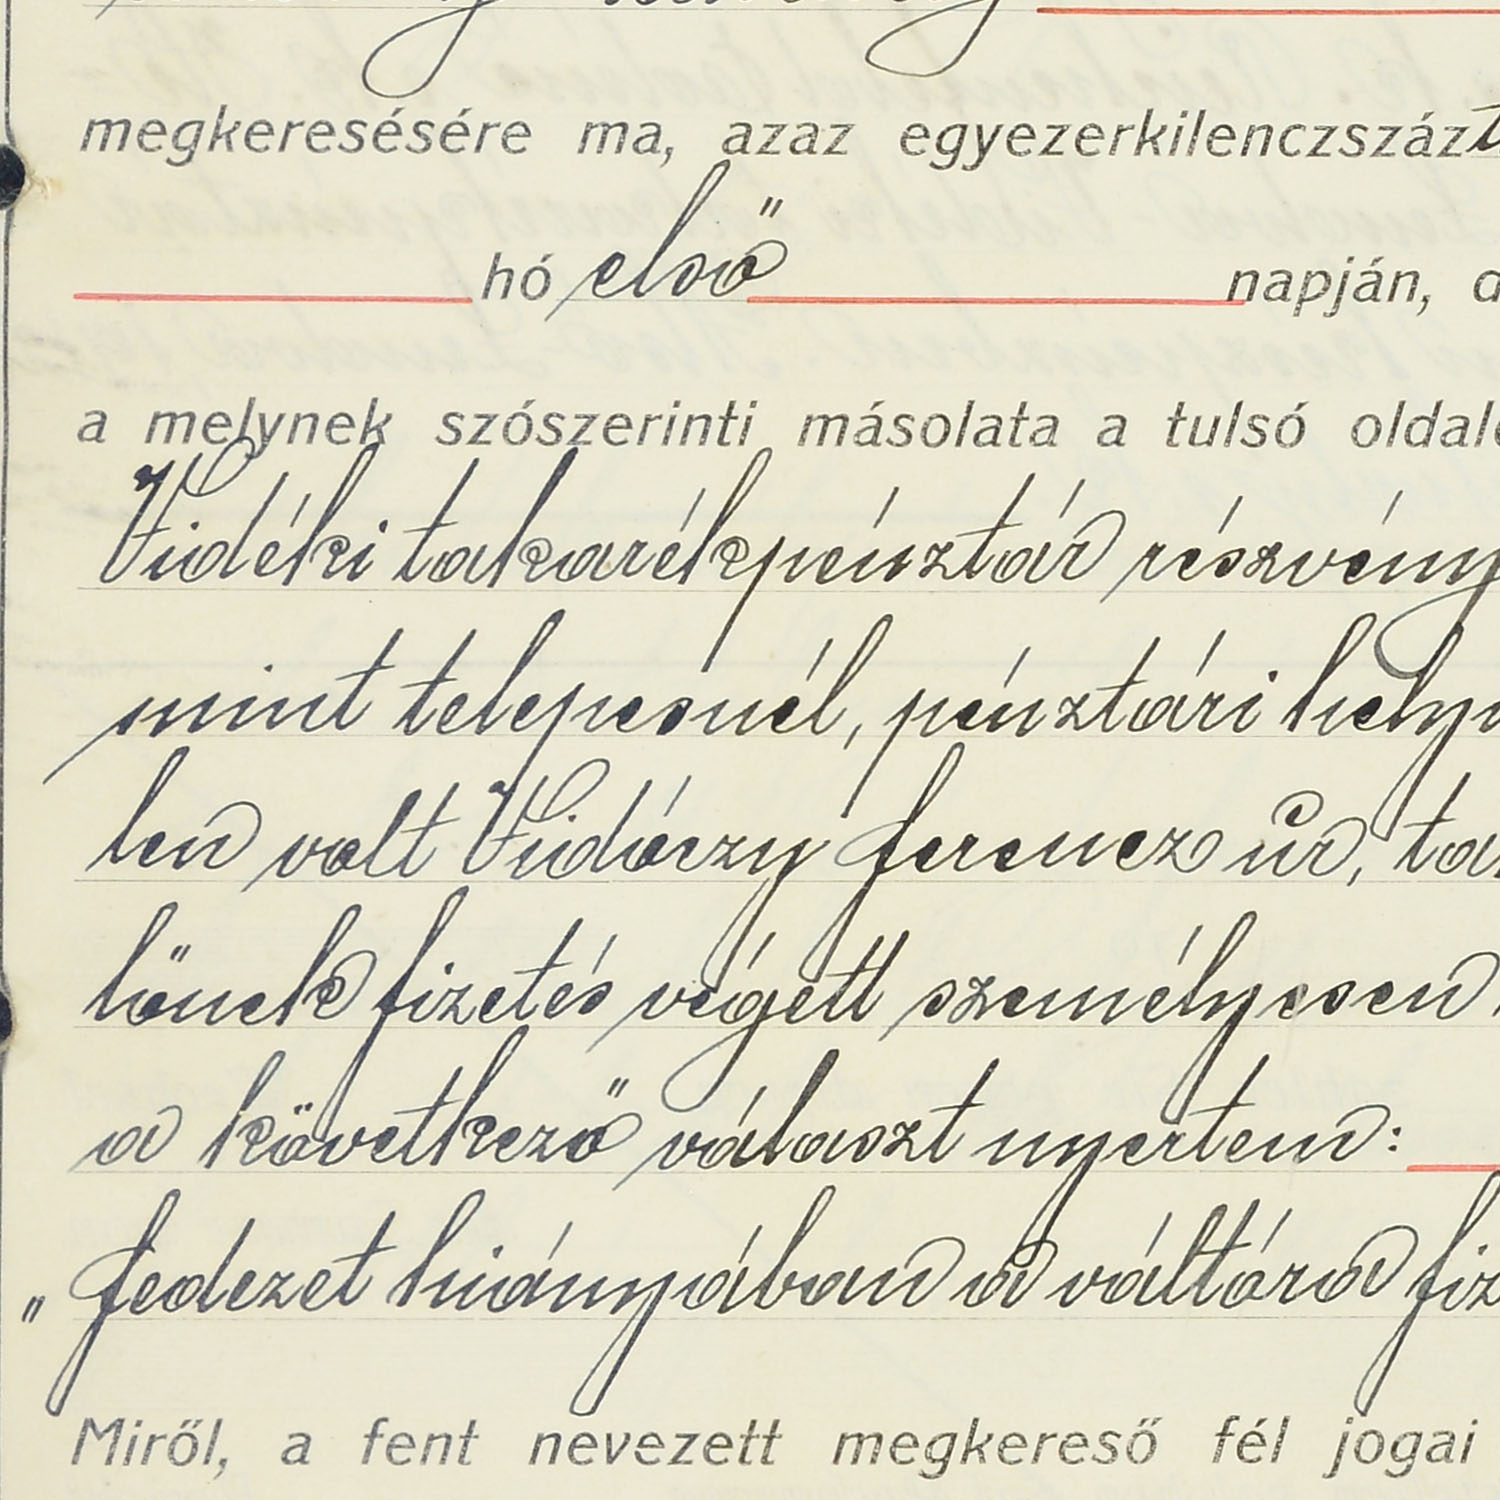 megkeresésére ma, azaz egyezerkilenczszázt
hó első napján, d
a melynek szószerinti másolata a tulsó oldal
Vidéki takarékpénztár részvény
mint telepesnél, pénztári hely
len volt Vidóczy Ferencz úr, ta
tönek fizetés végett személyesen
a következő választ nyertem:
„Fedezet hiányában a váltóra fiz
Miről, a fent nevezett megkereső fél jogai